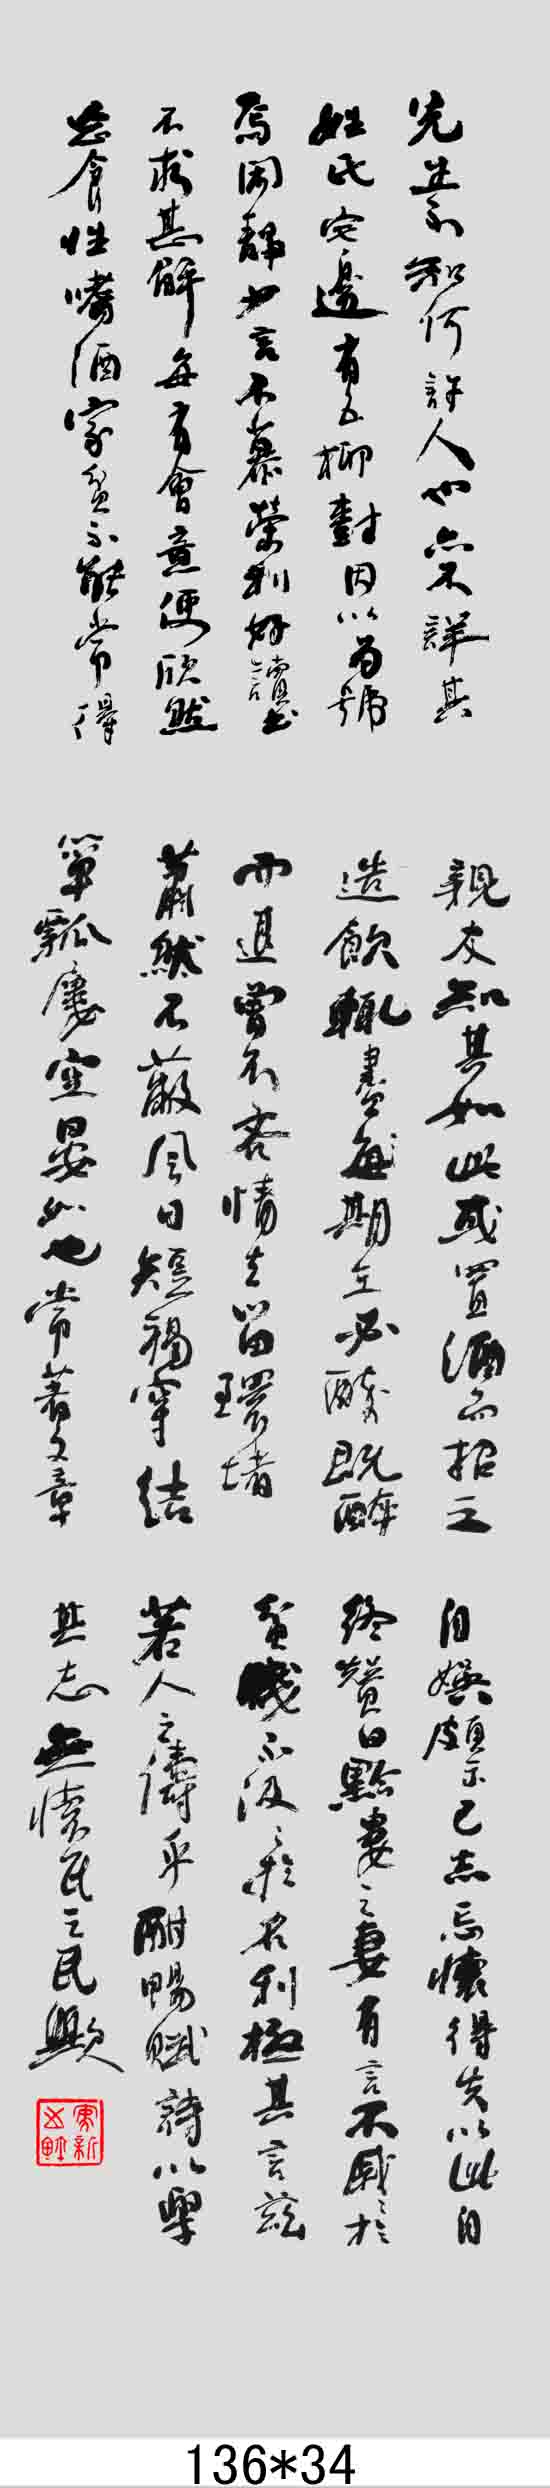 先生不知何許人也亦不詳其
姓氏宅邊有五柳樹因以為號
焉閑靜少言不慕榮利好讀書
不求甚解每有會意便欣然
忘食性嗜酒家貧不能常得
親友知其如此或置酒而招之
造飲輒盡每期在必醉既醉
而退曾不吝情去留環堵
蕭然不蔽風日短褐穿結
簞瓢屢空晏如也常著文章
自娛頗示己志忘懷得失以此自
終贊曰黔婁之妻有言不戚〻於
貧賤不汲〻於名利極其言茲
若人之儔乎酣暢賦詩以樂
其志無懷氏之民歟
136*34